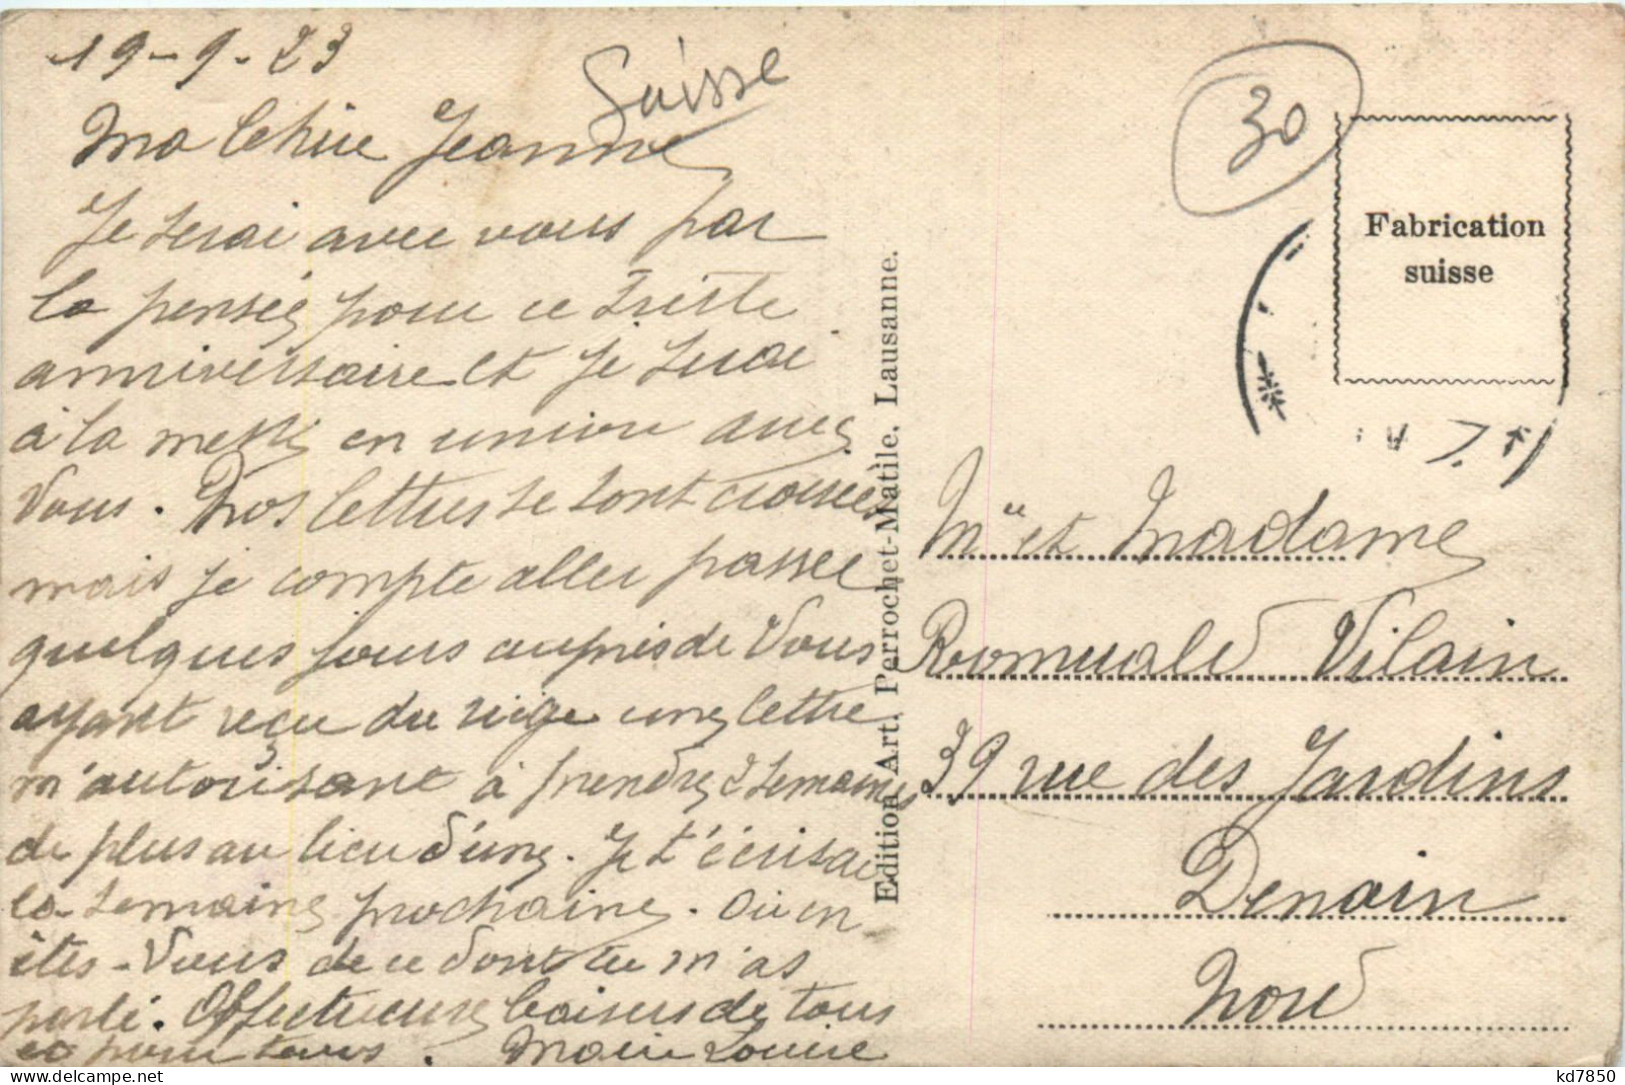 19-9-23
Suisse
Ma Chère Jeanne
Je serai avec vous par
la pensée pour ce triste
anniversaire et je serai
à la messe en union avec
Vous. Nos lettres se sont croisées
mais je compte aller passer
quelques jours auprès de Vous
ayant reçu du siège une lettre
m'autorisant à prendre 2 semaines
de plus au lieu d'une. Je t'écrirai
la semaine prochaine. Où en
êtes-Vous de ce dont tu m'as
parlé. Affectueux baisers de tous
et pour tous. Marie Louise
Edition Art. Perrochet-Matile, Lausanne.
30
Fabrication
suisse
Mr et Madame
Romuald Vilain
39 rue des Jardins
Denain
Nord
kd7850